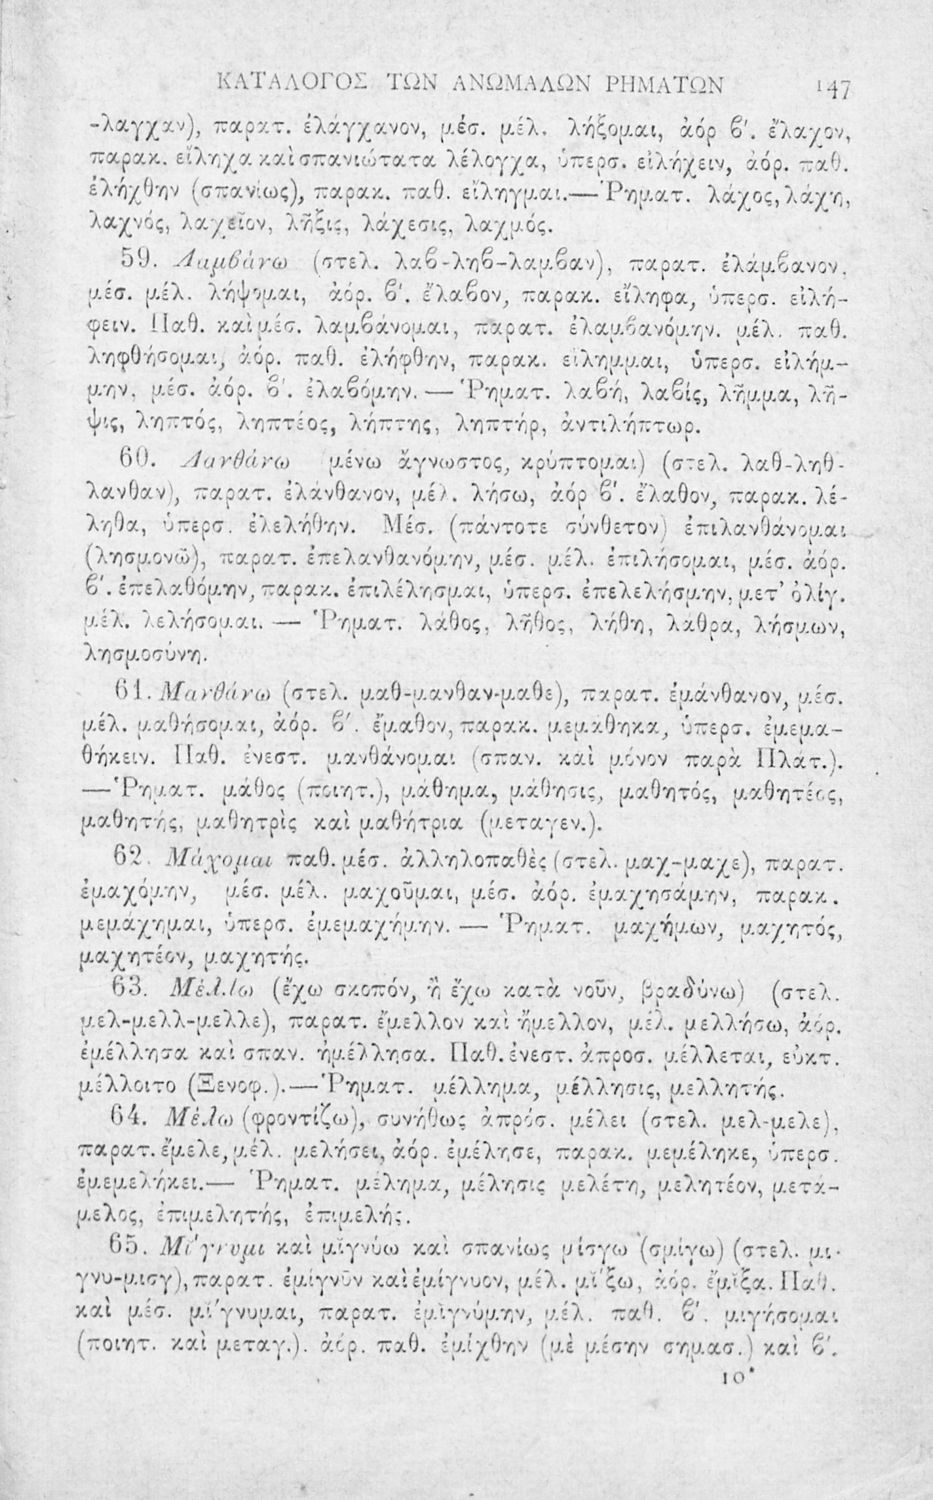 ΚΑΤΑΛΟΓΟΣ ΤΩΝ ΑΝΩΜΑΛΩΝ ΡΗΜΑΤΩΝ 147
-λαγχαν), παρατ. ἐλάγχανον, μέσ. μέλ. λήξομαι, ἀόρ β'. ἔλαχον,
παρακ. εἴληχα καὶ σπανιώτατα λέλογχα, ὑπερσ. εἰλήχειν, ἀόρ. παθ.
ἐλήχθην (σπανίως), παρακ. παθ. εἴληγμαι.— Ῥηματ. λάχος, λάχη,
λαχνός, λαχεῖον, λῆξις, λάχεσις, λαχμός.
59. Λαμβάνω (στελ. λαβ-ληβ-λαμβαν), παρατ. ἐλάμβανον,
μέσ. μέλ. λήψομαι, ἀόρ. β'. ἔλαβον, παρακ. εἴληφα, ὑπερσ. εἰλή-
φειν. Παθ. καὶ μέσ. λαμβάνομαι, παρατ. ἐλαμβανόμην. μέλ. παθ.
ληφθήσομαι, ἀόρ. παθ. ἐλήφθην, παρακ. εἴλημμαι, ὑπερσ. εἰλήμ-
μην, μέσ. ἀόρ. β'. ἐλαβόμην. — Ῥηματ. λαβή, λαβίς, λῆμμα, λῆ-
ψις, ληπτός, ληπτέος, λήπτης, ληπτήρ, ἀντιλήπτωρ.
60. Λανθάνω (μένω ἄγνωστος, κρύπτομαι) (στελ. λαθ-ληθ-
λανθαν), παρατ. ἐλάνθανον, μέλ. λήσω, ἀόρ β'. ἔλαθον, παρακ. λέ-
ληθα, ὑπερσ. ἐλελήθην. Μέσ. (πάντοτε σύνθετον) ἐπιλανθάνομαι
(λησμονῶ), παρατ. ἐπελανθανόμην, μέσ. μέλ. ἐπιλήσομαι, μέσ. ἀόρ.
β'. ἐπελαθόμην, παρακ. ἐπιλέλησμαι, ὑπερσ. ἐπελελήσμην, μετ' ὀλίγ.
μέλ. λελήσομαι. — Ῥηματ. λάθος, λῆθος, λήθη, λάθρα, λήσμων,
λησμοσύνη.
61. Μανθάνω (στελ. μαθ-μανθαν-μαθε), παρατ. ἐμάνθανον, μέσ.
μέλ. μαθήσομαι, ἀόρ. β'. ἔμαθον, παρακ. μεμάθηκα, ὑπερσ. ἐμεμα-
θήκειν. Παθ. ἐνεστ. μανθάνομαι (σπαν. καὶ μόνον παρὰ Πλάτ.).
—Ῥηματ. μάθος (ποιητ.), μάθημα, μάθησις, μαθητός, μαθητέος,
μαθητής, μαθητρὶς καὶ μαθήτρια (μεταγεν.).
62. Μάχομαι παθ. μέσ. ἀλληλοπαθὲς (στελ. μαχ-μαχε), παρατ.
ἐμαχόμην, μέσ. μέλ. μαχοῦμαι, μέσ. ἀόρ. ἐμαχησάμην, παρακ.
μεμάχημαι, ὑπερσ. ἐμεμαχήμην. — Ῥηματ. μαχήμων, μαχητός,
μαχητέον, μαχητής.
63. Μέλλω (ἔχω σκοπόν, ἢ ἔχω κατὰ νοῦν, βραδύνω) (στελ.
μελ-μελλ-μελλε), παρατ. ἔμελλον καὶ ἤμελλον, μέλ. μελλήσω, ἀόρ.
ἐμέλλησα καὶ σπαν. ἠμέλλησα. Παθ. ἐνεστ. ἀπροσ. μέλλεται, εὐκτ.
μέλλοιτο (Ξενοφ.).—Ῥηματ. μέλλημα, μέλλησις, μελλητής.
64. Μέλω (φροντίζω), συνήθως ἀπρόσ. μέλει (στελ. μελ-μελε),
παρατ. ἔμελε, μέλ. μελήσει, ἀόρ. ἐμέλησε, παρακ. μεμέληκε, ὑπερσ.
ἐμεμελήκει.— Ῥηματ. μέλημα, μέλησις μελέτη, μελητέον, μετά-
μελος, ἐπιμελητής, ἐπιμελής.
65. Μί̆γνυμι καὶ μῐγνύω καὶ σπανίως μίσγω (σμίγω) (στελ. μι-
γνυ-μισγ), παρατ. ἐμίγνῡν καὶ ἐμίγνυον, μέλ. μί̆ξω, ἀόρ. ἔμῐξα. Παθ.
καὶ μέσ. μί̆γνυμαι, παρατ. ἐμῐγνύμην, μέλ. παθ. β'. μιγήσομαι
(ποιητ. καὶ μεταγ.). ἀόρ. παθ. ἐμίχθην (μὲ μέσην σημασ.) καὶ β'.
10*